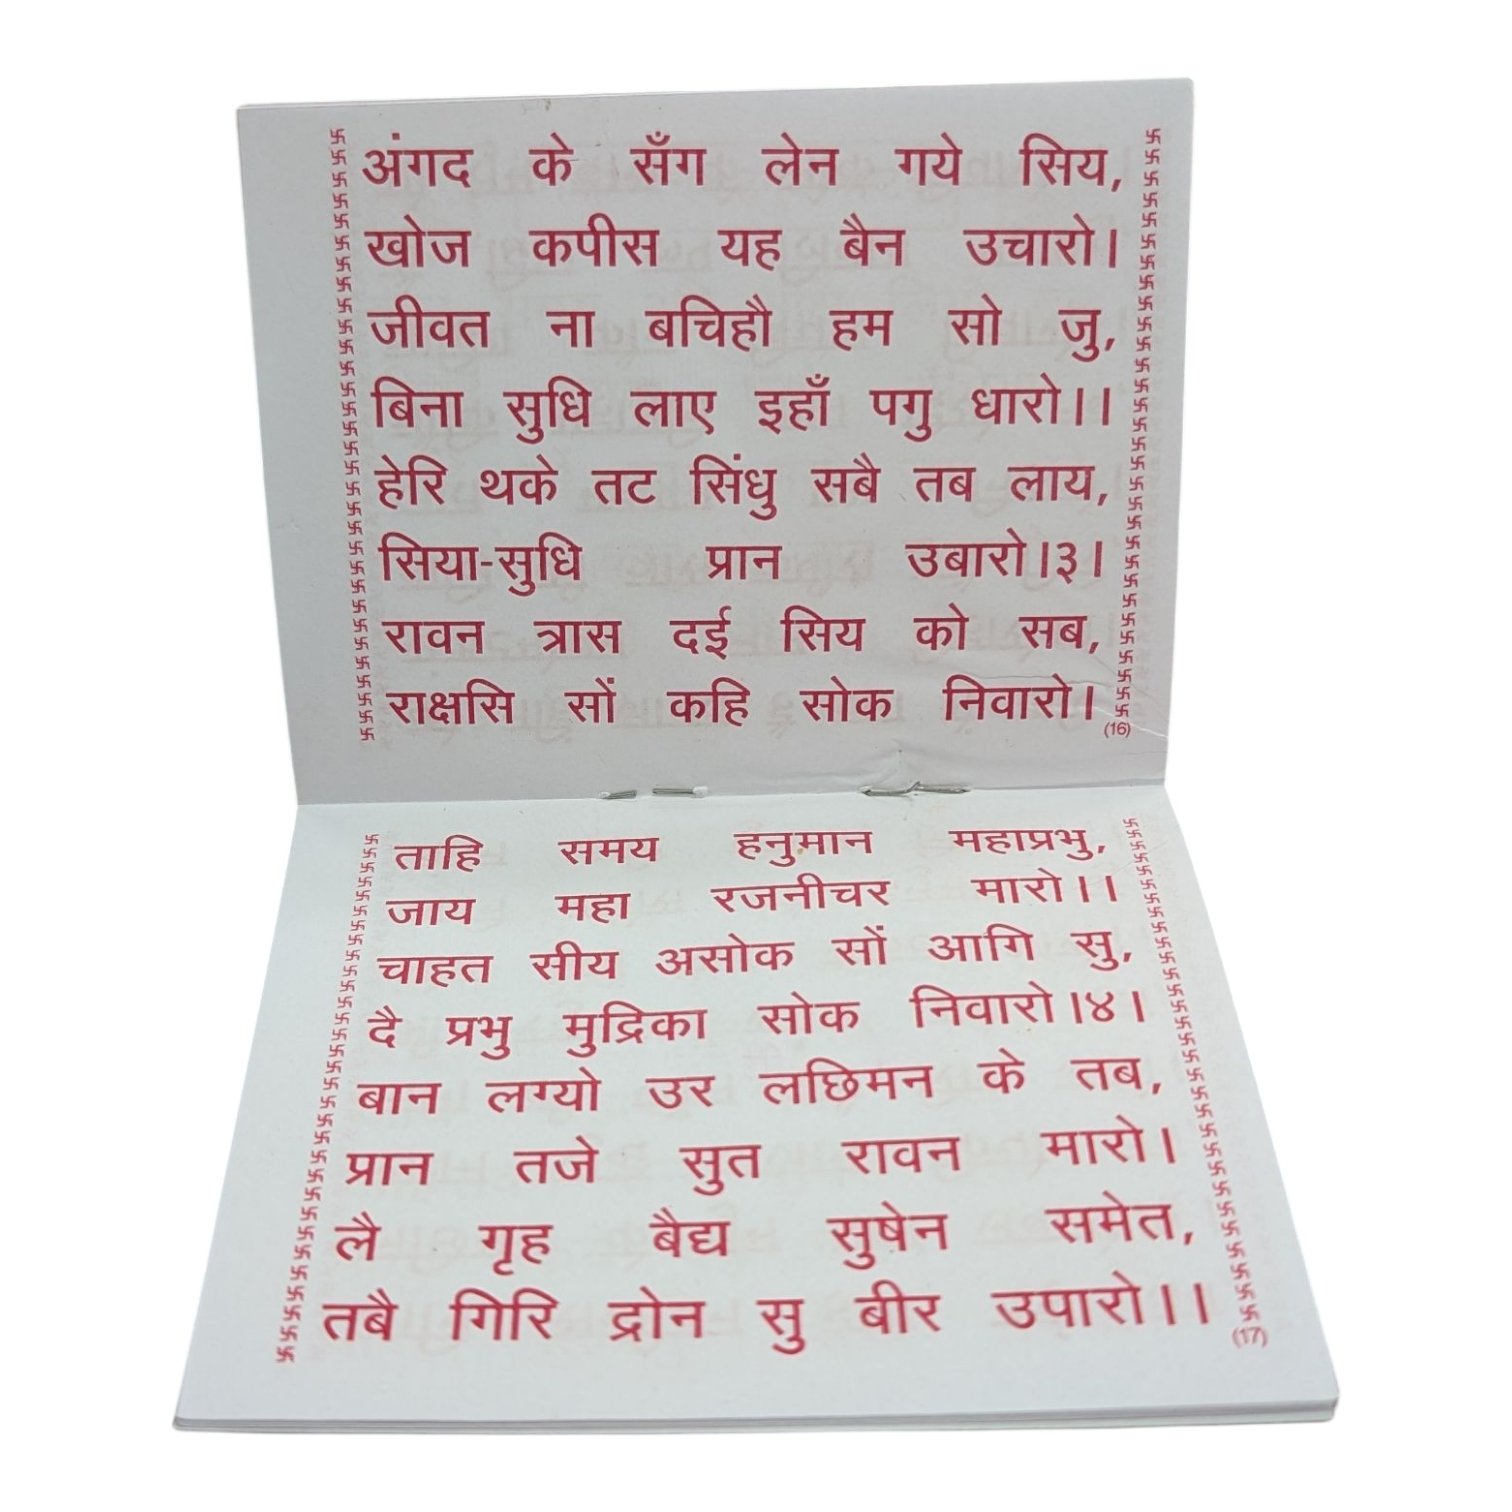 अंगद के सँग लेन गये सिय,
खोज कपीस यह बैन उचारो।
जीवत ना बचिहौ हम सो जु,
बिना सुधि लाए इहाँ पगु धारो।।
हेरि थके तट सिंधु सबै तब लाय,
सिया-सुधि प्रान उबारो।३।
रावन त्रास दई सिय को सब,
राक्षसि सों कहि सोक निवारो।
(16)
ताहि समय हनुमान महाप्रभु,
जाय महा रजनीचर मारो।।
चाहत सीय असोक सों आगि सु,
दै प्रभु मुद्रिका सोक निवारो।४।
बान लग्यो उर लछिमन के तब,
प्रान तजे सुत रावन मारो।
लै गृह बैद्य सुषेन समेत,
तबै गिरि द्रोन सु बीर उपारो।।
(17)